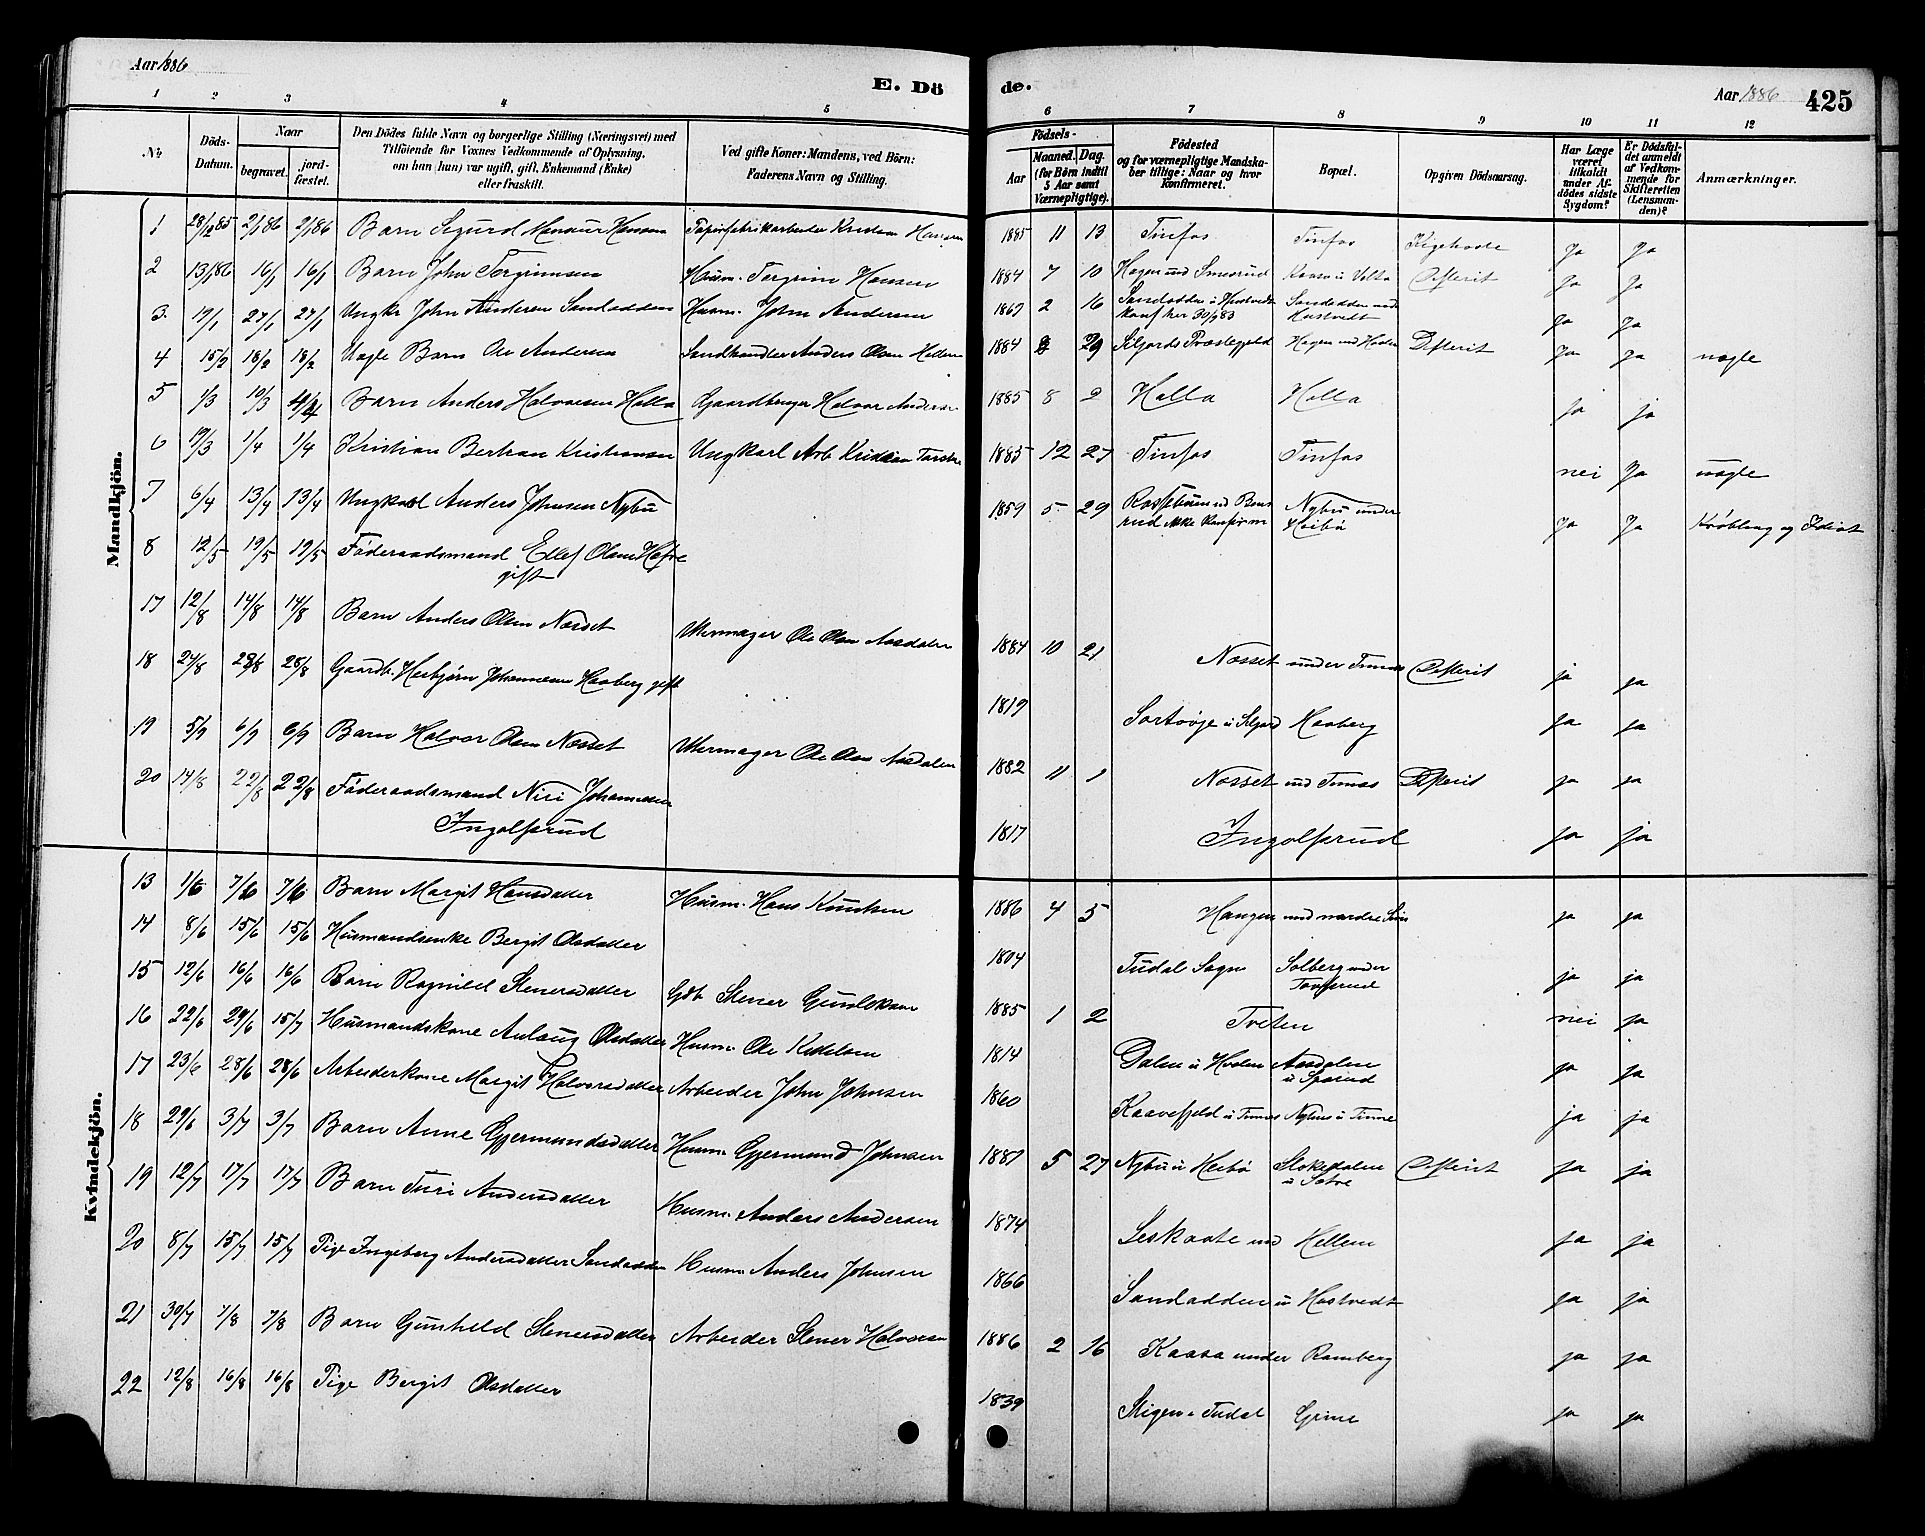 Aar 1886
E. Dö
de.
Aar 1886
425
1 2 3 4 5 6 7 8 9 10 11 12
No
Döds-Datum.
Naar
begravet.
jord-fæstet.
Den Dödes fulde Navn og borgerlige Stilling (Næringsvei) med
Tilföiende for Voxnes Vedkommende af Oplysning,
om han (hun) var ugift, gift, Enkemand (Enke)
eller fraskilt.
Ved gifte Koner: Mandens, ved Börn:
Faderens Navn og Stilling.
Födsels-
Aar
Maaned.
Dag.
(for Börn indtil
5 Aar samt
Værnepligtige).
Födested
og for værnepligtige Mandska-
ber tillige: Naar og hvor
konfirmeret.
Bopæl.
Opgiven Dödsaarsag.
Har Læge
været
tilkaldt
under Af-
dödes sidste
Sygdom?
Er Dödsfal-
det anmeldt
af Vedkom-
mende for
Skifteretten
(Lensman-
den)?
Anmærkninger.
Mandkjön.
1 28/12 85 2/1 86 2/1 86 Barn Sigurd Hansen Kristian Hansen 1885 11 13 Tinfos Tinfos Kighoste Ja Ja
2 13/1 86 16/1 16/1 Barn John Torgrimsen Husm. Torgrim Hansen 1884 7 10 Hagen und Smesrud Kaasa u Difterit Ja Ja
3 19/1 27/1 27/1 Ungkr John Andersen Sandodden Husm. John Andersen 1869 2 16 Sandodden u Hustvedt
konf her 30/9 83 Sandodden und
Hustvedt Ja Ja
4 15/2 18/2 18/2 Uægte Barn Ole Andersen Landhandler Anders Olsen Hellem 1884 29 Siljords Præstegjeld Hagen und Difterit Ja Ja uægte
5 1/3 10/3 Barn Anders Halvorsen Holla Gaardbruger Halvor Andersen 1885 8 2 Holla Holla Ja ja
6 19/3 1/4 1/4 Kristian Bertran Kristiansen Ungkarl Arb Kristian 1885 12 27 Tinfos Tinfos nei Ja uægte
7 6/4 13/4 13/4 Ungkarl Anders Johnsen Nybu 1859 5 29 ikke konfirm Nybu under
Heibö Ja Ja Krøbling og Idiot
8 12/5 19/5 19/5 Föderaadsmand Ellef Olsen
gift
17 12/8 14/8 14/8 Barn Anders Olsen Næsset Uhrmager Ole Olsen Aasdalen 1884 10 21 Næsset under Tinnes Difterit ja ja
18 24/8 28/8 28/8 Gaardb. Herbjörn Johannesen Haaberg gift 1819 Sortöije u Siljord Haaberg Ja ja
19 5/9 6/9 6/9 Barn Halvor Olsen Næsset Uhrmager Ole Olsen Aasdalen 1882 11 1 Næsset und Tinnes Difterit ja ja
20 14/8 22/8 22/8 Föderaadsmand Niri Johannesen
Ingolfsrud 1817 Ingolfsrud ja ja
Kvindekjön.
13 1/6 7/6 7/6 Barn Margit Hansdatter Husm. Hans Knutsen 1886 4 5 Haugen und nordre ja ja
14 8/6 15/6 15/6 Husmandsenke Bergit Olsdatter 1804 Tudal Sogn Solberg under ja ja
15 12/6 16/6 16/6 Barn Ragnild Stenersdatter Gdb Stener Gunlekson 1885 1 2 Tveten nei ja
16 22/6 29/6 15/7 Husmandskone Aslaug Olsdatter Husm. Ole Kittilsen 1814 Dalen u Hvalen Aasdalen
u Sparud ja ja
17 23/6 28/6 28/6 Arbeiderkone Margit Halvorsdatter Arbeider John Johnsen 1860 Kaavefjeld u Tinnes Nybu u Tinne ja ja
18 29/6 3/7 3/7 Barn Anne Gjermundsdatter Husm. Gjermund Johnsen 1881 5 27 Nybu u Heibö Stokedalen
u Sætre Difterit ja ja
19 12/7 17/7 17/7 Barn Turi Andersdatter Husm. Anders Andersen 1874 Leskaate und Hellem ja ja
20 8/7 15/7 15/7 Pige Ingeborg Andersdatter Sandodden Husm Anders Johnsen 1866 Sandodden u Hustvedt ja ja
21 30/7 7/8 7/8 Barn Gunhild Stenersdatter Arbeider Stener Halvorsen 1886 2 16 Kaasa under Ramberg ja ja
22 12/8 16/8 16/8 Pige Bergit Olsdatter 1839 Stigen u Tudal Grine ja ja